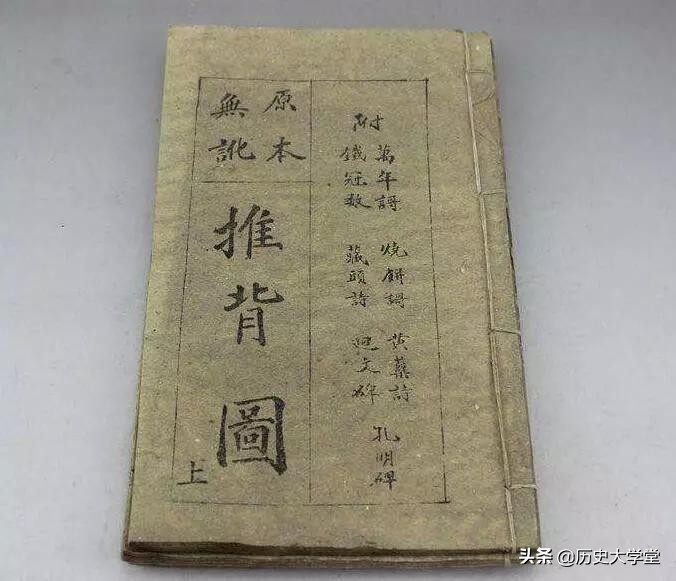 附
萬年謌 燒餅謌 黄蘗詩
鐵冠数 藏頭詩 迴文碑
孔明碑
原本
無訛
推背圖
上
头条 @历史大学堂